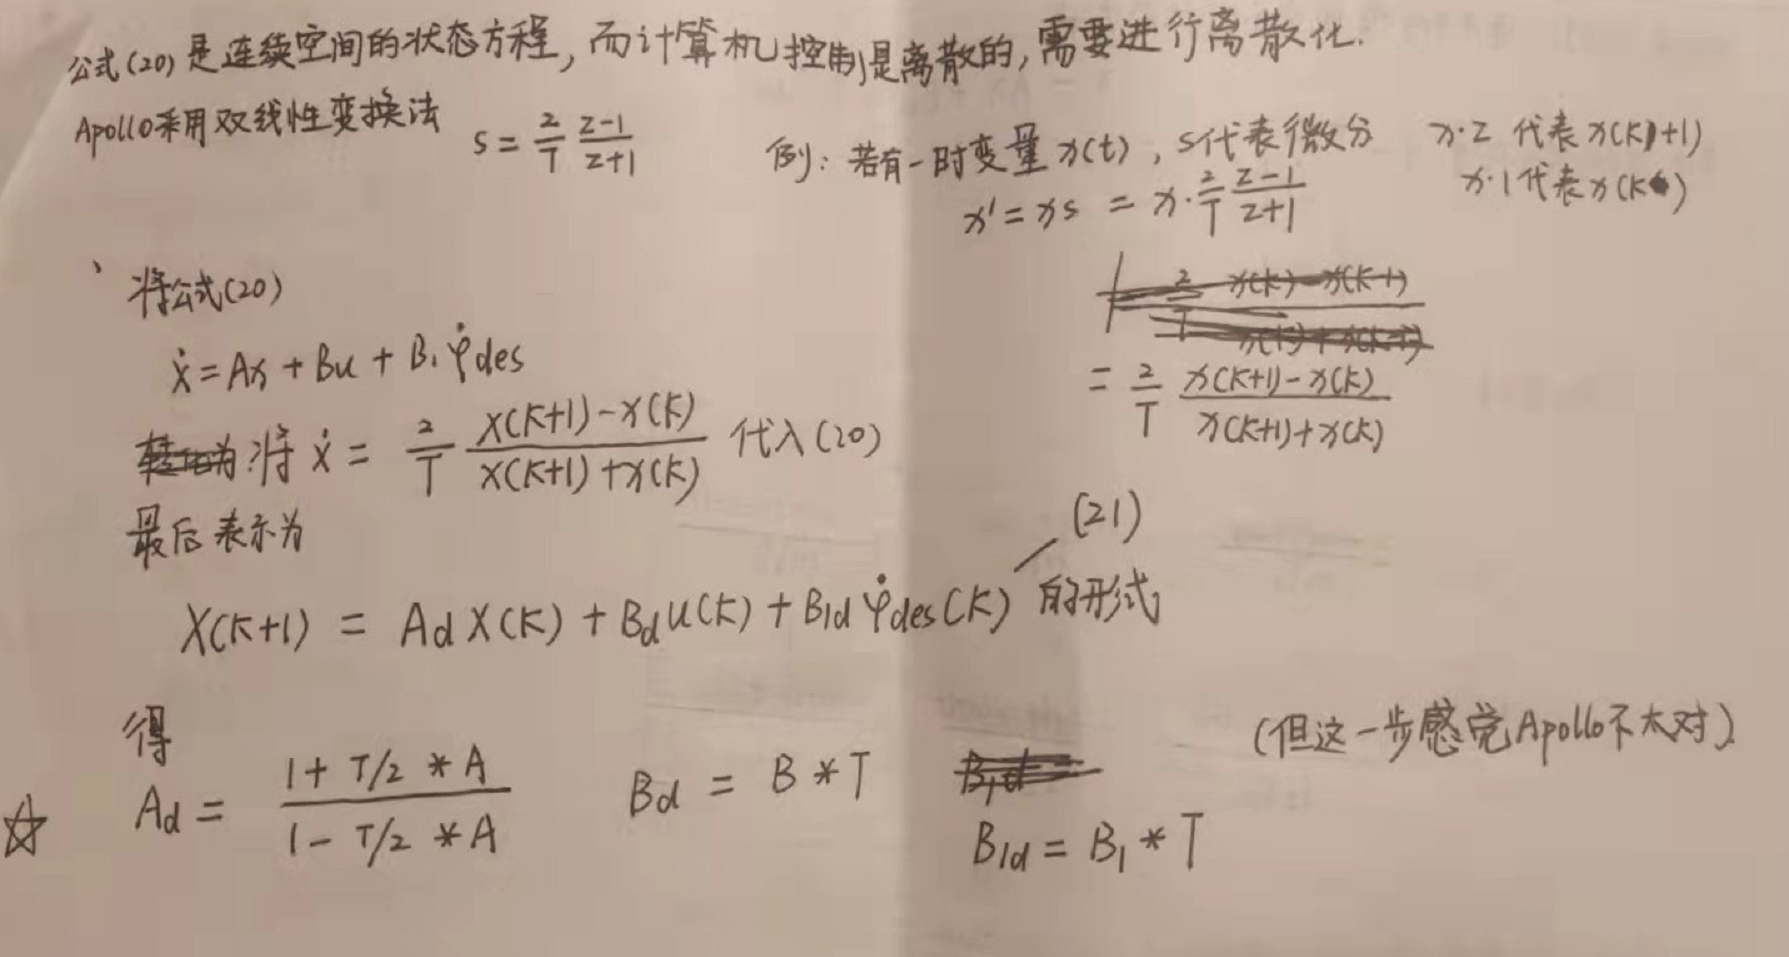 公式(20)是连续空间的状态方程,而计算机控制是离散的,需要进行离散化.
Apollo采用双线性变换法 S = 2/T (z-1)/(z+1)
例: 若有一时变量 x(t), S代表微分 x·z 代表 x(k+1)
x·1代表 x(k)
x' = xs = x · 2/T (z-1)/(z+1)
= 2/T (x(k+1)-x(k))/(x(k+1)+x(k))
将公式(20)
ẋ = Ax + Bu + B₁ φ̇des
将 ẋ = 2/T (x(k+1)-x(k))/(x(k+1)+x(k)) 代入(20)
最后表示为
(21)
X(k+1) = Ad X(k) + Bd u(k) + B1d φ̇des(k) 的形式
得
(但这一步感觉Apollo不太对)
☆ Ad = (1 + T/2 * A)/(1 - T/2 * A) Bd = B * T
B1d = B₁ * T